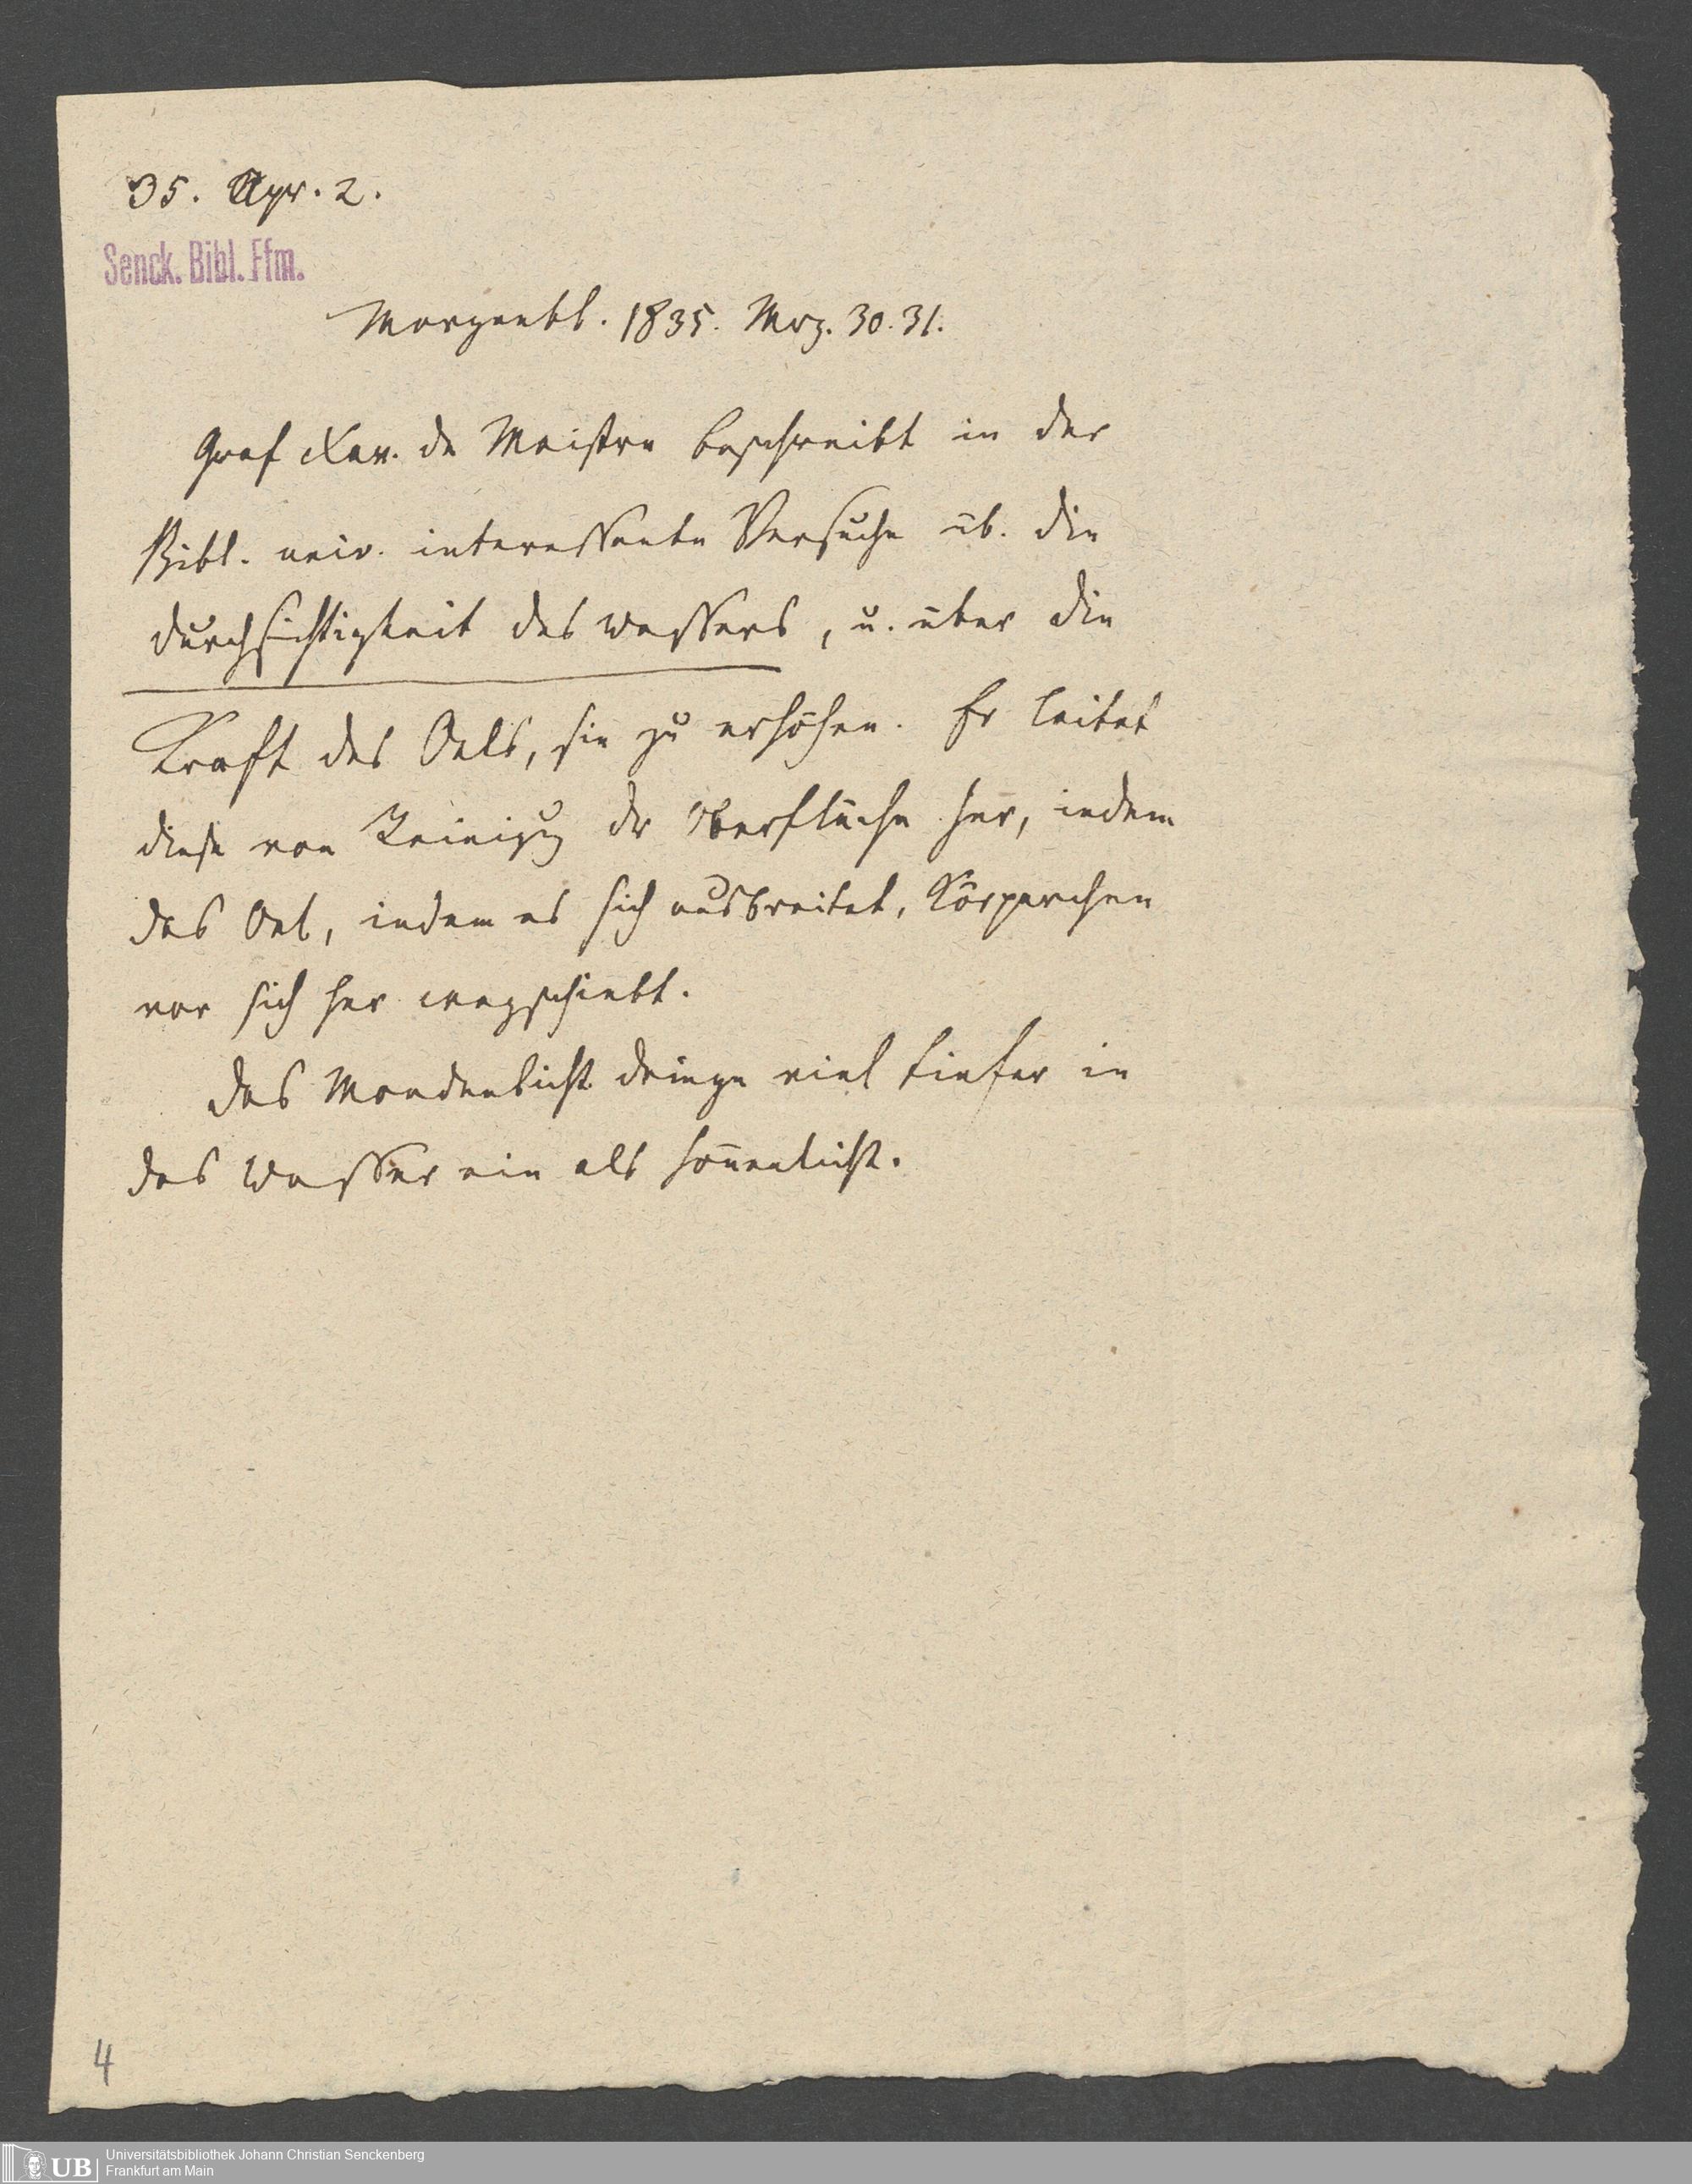 35. Apr. 2.
Senck. Bibl. Ffm.
Morgenbl. 1835. Mrz. 30. 31.
Graf Xav. de Maistre beschreibt in der
Bibl. univ. interessante Versuche üb. die
Durchsichtigkeit des Wassers, u. über die
Kraft des Oels, sie zu erhöhen. Er leitet
diese von Reinigg der Oberfläche her, indem
das Oel, indem es sich ausbreitet, Körperchen
vor sich her wegschiebt.
Das Mondenlicht dringe viel tiefer in
das Wasser ein als Sonnenlicht.
4
UB Universitätsbibliothek Johann Christian Senckenberg
Frankfurt am Main